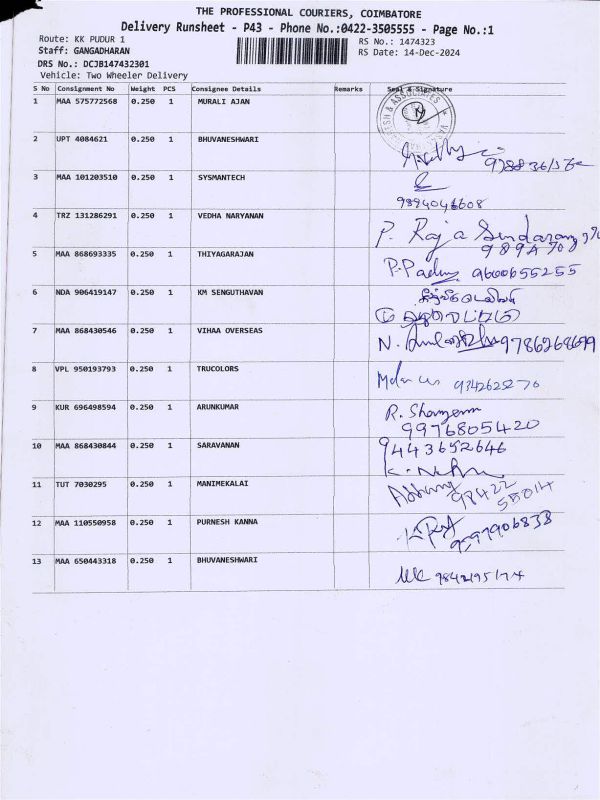 THE PROFESSIONAL COURIERS, COIMBATORE
Delivery Runsheet - P43 - Phone No.:0422-3505555 - Page No.:1
Route: KK PUDUR 1
RS No.: 1474323
Staff: GANGADHARAN
RS Date: 14-Dec-2024
DRS No.: DCJB147432301
Vehicle: Two Wheeler Delivery
S No Consignment No Weight PCS Consignee Details Remarks Seal & Signature
1 MAA 575772568 0.250 1 MURALI AJAN
2 UPT 4084621 0.250 1 BHUVANESHWARI
3 MAA 101203510 0.250 1 SYSMANTECH
9894046608
4 TRZ 131286291 0.250 1 VEDHA NARYANAN P. Raja
5 MAA 868693335 0.250 1 THIYAGARAJAN 9600655255
6 NDA 906419147 0.250 1 KM SENGUTHAVAN
7 MAA 868430546 0.250 1 VIHAA OVERSEAS N. 9786268699
8 VPL 950193793 0.250 1 TRUCOLORS
9 KUR 696498594 0.250 1 ARUNKUMAR R.
9976805420
10 MAA 868430844 0.250 1 SARAVANAN 9443652646
11 TUT 7030295 0.250 1 MANIMEKALAI
12 MAA 110550958 0.250 1 PURNESH KANNA
13 MAA 650443318 0.250 1 BHUVANESHWARI